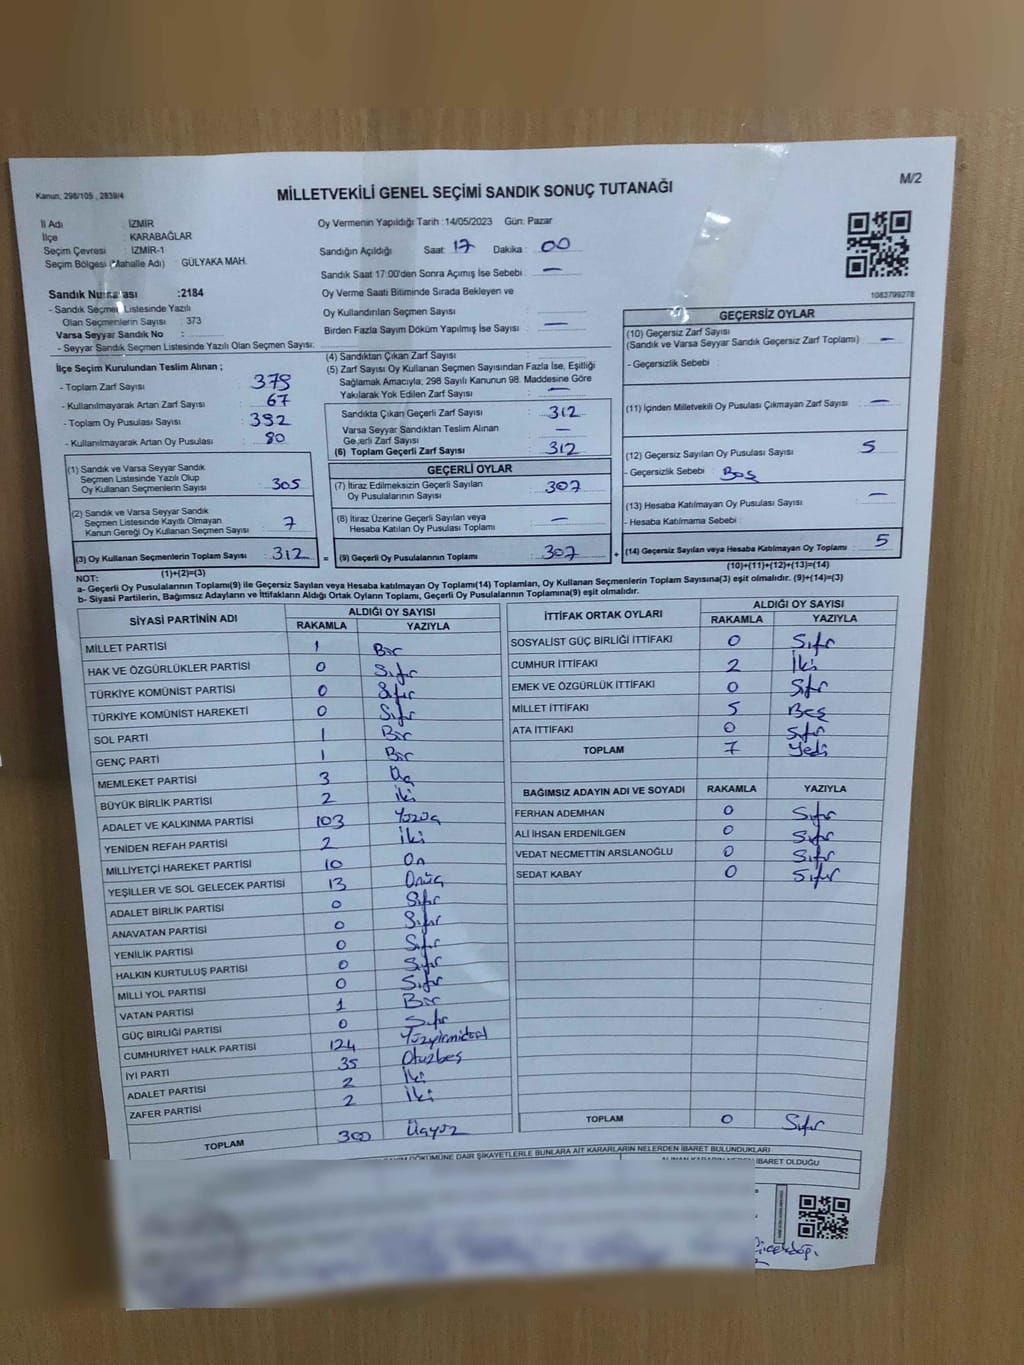 Kanun, 298/105 , 2839/4
MİLLETVEKİLİ GENEL SEÇİMİ SANDIK SONUÇ TUTANAĞI
M/2
İl Adı : İZMİR
İlçe : KARABAĞLAR
Seçim Çevresi : İZMİR-1
Seçim Bölgesi (Mahalle Adı) GÜLYAKA MAH.
Sandık Numarası :2184
- Sandık Seçmen Listesinde Yazılı
Olan Seçmenlerin Sayısı : 373
Varsa Seyyar Sandık No :
- Seyyar Sandık Seçmen Listesinde Yazılı Olan Seçmen Sayısı:
Oy Vermenin Yapıldığı Tarih :14/05/2023 Gün: Pazar
Sandığın Açıldığı Saat: 17 Dakika : 00
Sandık Saat 17:00'den Sonra Açımış İse Sebebi : —
Oy Verme Saati Bitiminde Sırada Bekleyen ve
Oy Kullandırılan Seçmen Sayısı :
Birden Fazla Sayım Döküm Yapılmış İse Sayısı : —
1083799278
İlçe Seçim Kurulundan Teslim Alınan ;
- Toplam Zarf Sayısı : 379
- Kullanılmayarak Artan Zarf Sayısı : 67
- Toplam Oy Pusulası Sayısı : 392
- Kullanılmayarak Artan Oy Pusulası : 80
(1) Sandık ve Varsa Seyyar Sandık
Seçmen Listesinde Yazılı Olup
Oy Kullanan Seçmenlerin Sayısı : 305
(2) Sandık ve Varsa Seyyar Sandık
Seçmen Listesinde Kayıtlı Olmayan
Kanun Gereği Oy Kullanan Seçmen Sayısı : 7
(3) Oy Kullanan Seçmenlerin Toplam Sayısı : 312
(1)+(2)=(3)
(4) Sandıktan Çıkan Zarf Sayısı :
(5) Zarf Sayısı Oy Kullanan Seçmen Sayısından Fazla İse, Eşitliği
Sağlamak Amacıyla; 298 Sayılı Kanunun 98. Maddesine Göre
Yakılarak Yok Edilen Zarf Sayısı : —
Sandıkta Çıkan Geçerli Zarf Sayısı : 312
Varsa Seyyar Sandıktan Teslim Alınan
Geçerli Zarf Sayısı : —
(6) Toplam Geçerli Zarf Sayısı : 312
GEÇERLİ OYLAR
(7) İtiraz Edilmeksizin Geçerli Sayılan
Oy Pusulalarının Sayısı : 307
(8) İtiraz Üzerine Geçerli Sayılan veya
Hesaba Katılan Oy Pusulası Toplamı : —
= (9) Geçerli Oy Pusulalarının Toplamı : 307
GEÇERSİZ OYLAR
(10) Geçersiz Zarf Sayısı
(Sandık ve Varsa Seyyar Sandık Geçersiz Zarf Toplamı) : —
- Geçersizlik Sebebi :
(11) İçinden Milletvekili Oy Pusulası Çıkmayan Zarf Sayısı : —
(12) Geçersiz Sayılan Oy Pusulası Sayısı : 5
- Geçersizlik Sebebi : Boş
(13) Hesaba Katılmayan Oy Pusulası Sayısı : —
- Hesaba Katılmama Sebebi :
+ (14) Geçersiz Sayılan veya Hesaba Katılmayan Oy Toplamı : 5
(10)+(11)+(12)+(13)=(14)
NOT:
a- Geçerli Oy Pusulalarının Toplamı(9) ile Geçersiz Sayılan veya Hesaba katılmayan Oy Toplamı(14) Toplamları, Oy Kullanan Seçmenlerin Toplam Sayısına(3) eşit olmalıdır. (9)+(14)=(3)
b- Siyasi Partilerin, Bağımsız Adayların ve İttifakların Aldığı Ortak Oyların Toplamı, Geçerli Oy Pusulalarının Toplamına(9) eşit olmalıdır.
SİYASİ PARTİNİN ADI ALDIĞI OY SAYISI
RAKAMLA YAZIYLA
MİLLET PARTİSİ 1 Bir
HAK VE ÖZGÜRLÜKLER PARTİSİ 0 Sıfır
TÜRKİYE KOMÜNİST PARTİSİ 0 Sıfır
TÜRKİYE KOMÜNİST HAREKETİ 0 Sıfır
SOL PARTİ 1 Bir
GENÇ PARTİ 1 Bir
MEMLEKET PARTİSİ 3 Üç
BÜYÜK BİRLİK PARTİSİ 2 İki
ADALET VE KALKINMA PARTİSİ 103 Yüzüç
YENİDEN REFAH PARTİSİ 2 İki
MİLLİYETÇİ HAREKET PARTİSİ 10 On
YEŞİLLER VE SOL GELECEK PARTİSİ 13 Onüç
ADALET BİRLİK PARTİSİ 0 Sıfır
ANAVATAN PARTİSİ 0 Sıfır
YENİLİK PARTİSİ 0 Sıfır
HALKIN KURTULUŞ PARTİSİ 0 Sıfır
MİLLİ YOL PARTİSİ 0 Sıfır
VATAN PARTİSİ 1 Bir
GÜÇ BİRLİĞİ PARTİSİ 0 Sıfır
CUMHURİYET HALK PARTİSİ 124 Yüzyirmidört
İYİ PARTİ 35 Otuzbeş
ADALET PARTİSİ 2 İki
ZAFER PARTİSİ 2 İki
TOPLAM 300 Üçyüz
İTTİFAK ORTAK OYLARI ALDIĞI OY SAYISI
RAKAMLA YAZIYLA
SOSYALİST GÜÇ BİRLİĞİ İTTİFAKI 0 Sıfır
CUMHUR İTTİFAKI 2 İki
EMEK VE ÖZGÜRLÜK İTTİFAKI 0 Sıfır
MİLLET İTTİFAKI 5 Beş
ATA İTTİFAKI 0 Sıfır
TOPLAM 7 Yedi
BAĞIMSIZ ADAYIN ADI VE SOYADI RAKAMLA YAZIYLA
FERHAN ADEMHAN 0 Sıfır
ALİ İHSAN ERDENİLGEN 0 Sıfır
VEDAT NECMETTİN ARSLANOĞLU 0 Sıfır
SEDAT KABAY 0 Sıfır
TOPLAM 0 Sıfır
DÖKÜMÜNE DAİR ŞİKAYETLERLE BUNLARA AİT KARARLARIN NELERDEN İBARET BULUNDUKLARI
ALINAN KARARIN NEDEN İBARET OLDUĞU